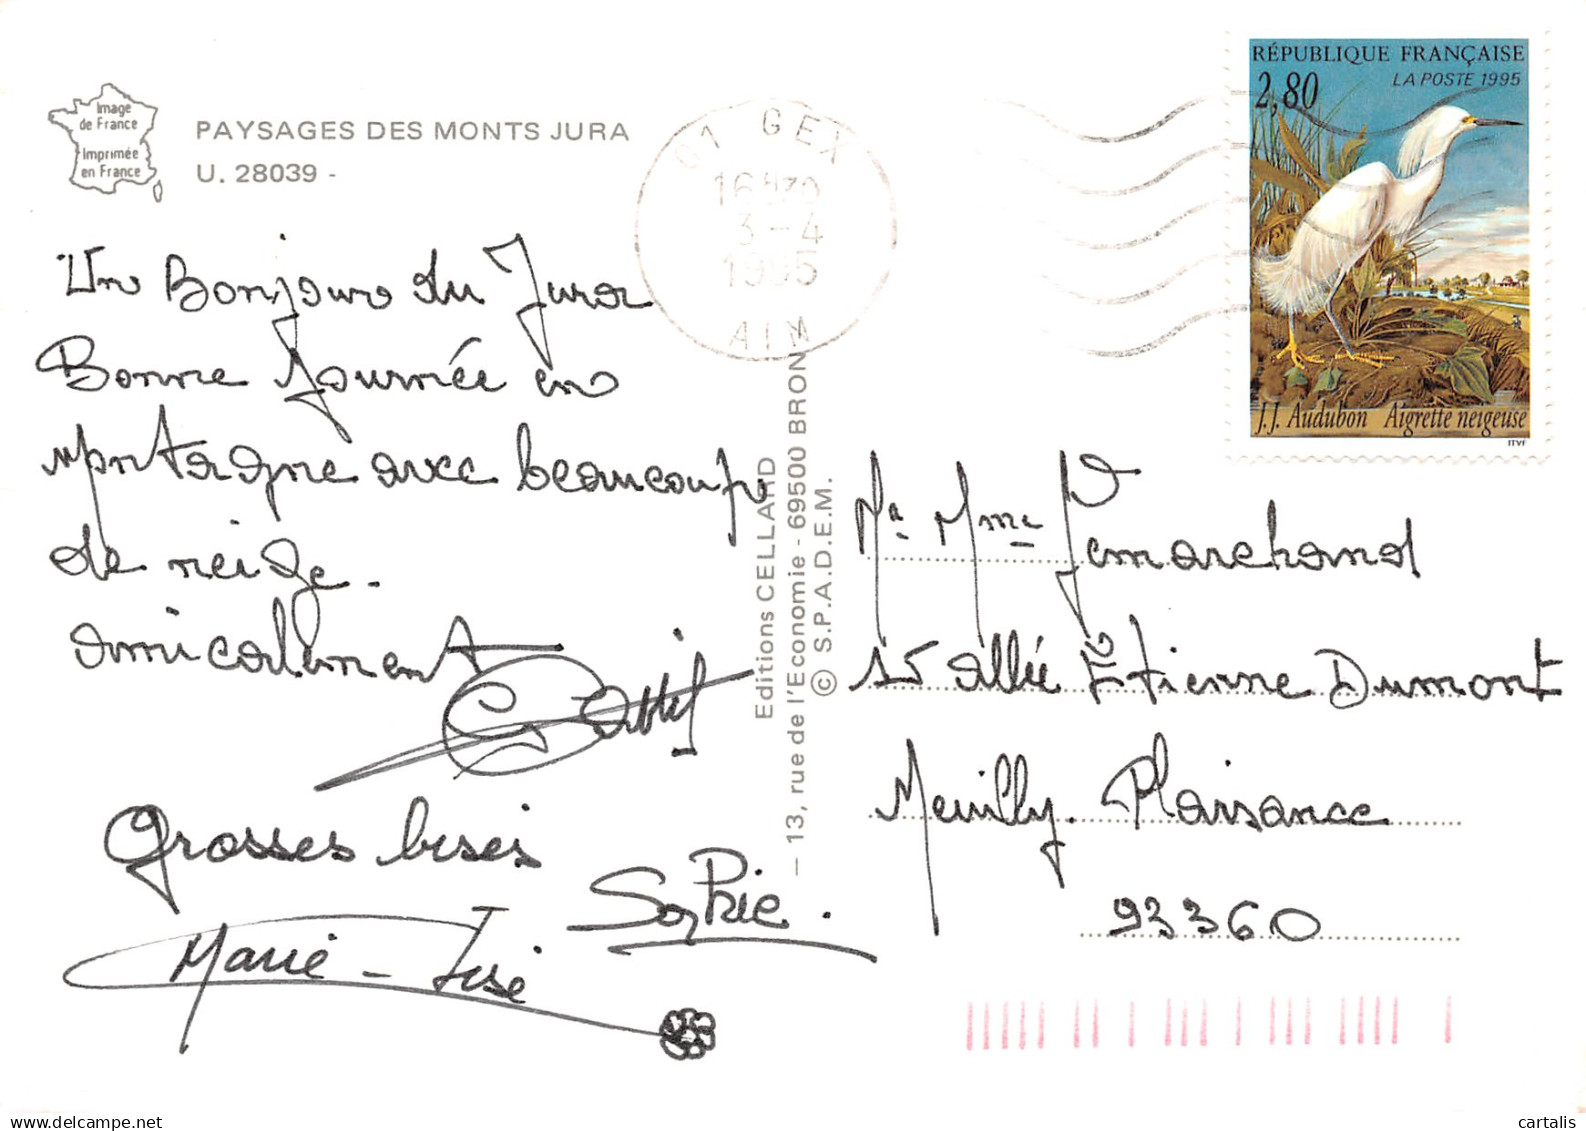 Image
de France
Imprimée
en France
PAYSAGES DES MONTS JURA
U. 28039 -
01 GEX
16H30
3-4
1995
AIN
RÉPUBLIQUE FRANÇAISE
2,80
LA POSTE 1995
J.J. Audubon Aigrette neigeuse
ITVF
Un Bonjour du Jura
Bonne journée en
Montagne avec beaucoup
de neige.
amicalement
grosses bises
Sophie.
Marie-José
Editions CELLARD
- 13, rue de l'Economie - 69500 BRON
© S.P.A.D.E.M.
Mme Lemarchand
15 allée Etienne Dumont
Neuilly. Plaisance
93360
cartalis